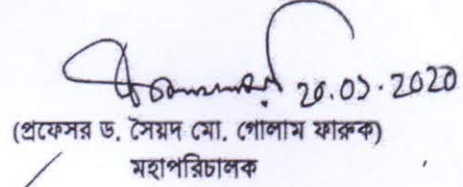 20.01.2020
(প্রফেসর ড. সৈয়দ মো. গোলাম ফারুক)
মহাপরিচালক